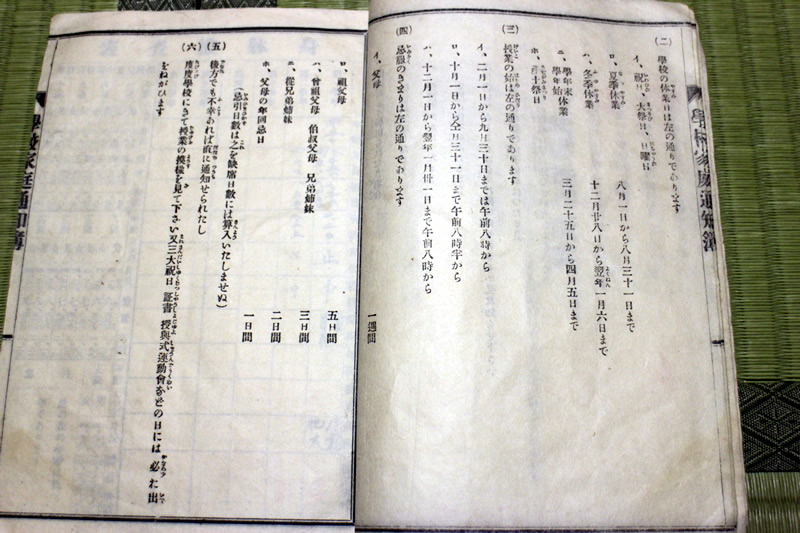 (二) 學校の休業日は左の通りであります
イ、祝日、大祭日、日曜日
ロ、夏季休業 八月一日から八月三十一日まで
ハ、冬季休業 十二月廿八日から翌年一月六日まで
ニ、學年末休業 學年始 三月二十五日から四月五日まで
ホ、
(三) 授業の始は左の通りであります
イ、二月一日から九月三十日までは午前八時から
ロ、十月一日から仝月三十一日まで午前八時半から
ハ、十二月一日から翌年一月卅一日まで午前八時から
(四) 忌服のきまりは左の通りであります
イ、父母 一週間
學校家庭通知簿
ロ、祖父母 五日間
ハ、曾祖父母 伯叔父母 兄弟姉妹 三日間
ニ、從兄弟姉妹 二日間
ホ、父母の年回忌日 一日間
(忌引日數は之を缺席日數には算入いたしませぬ)
(五) 後方でも不幸あれば直に通知せられたし
(六) 度度學校にきて授業の摸樣を見て下さい又三大祝日 証書 授與式運動會などの日には 必ず出
をねがひます
學校家庭通知簿